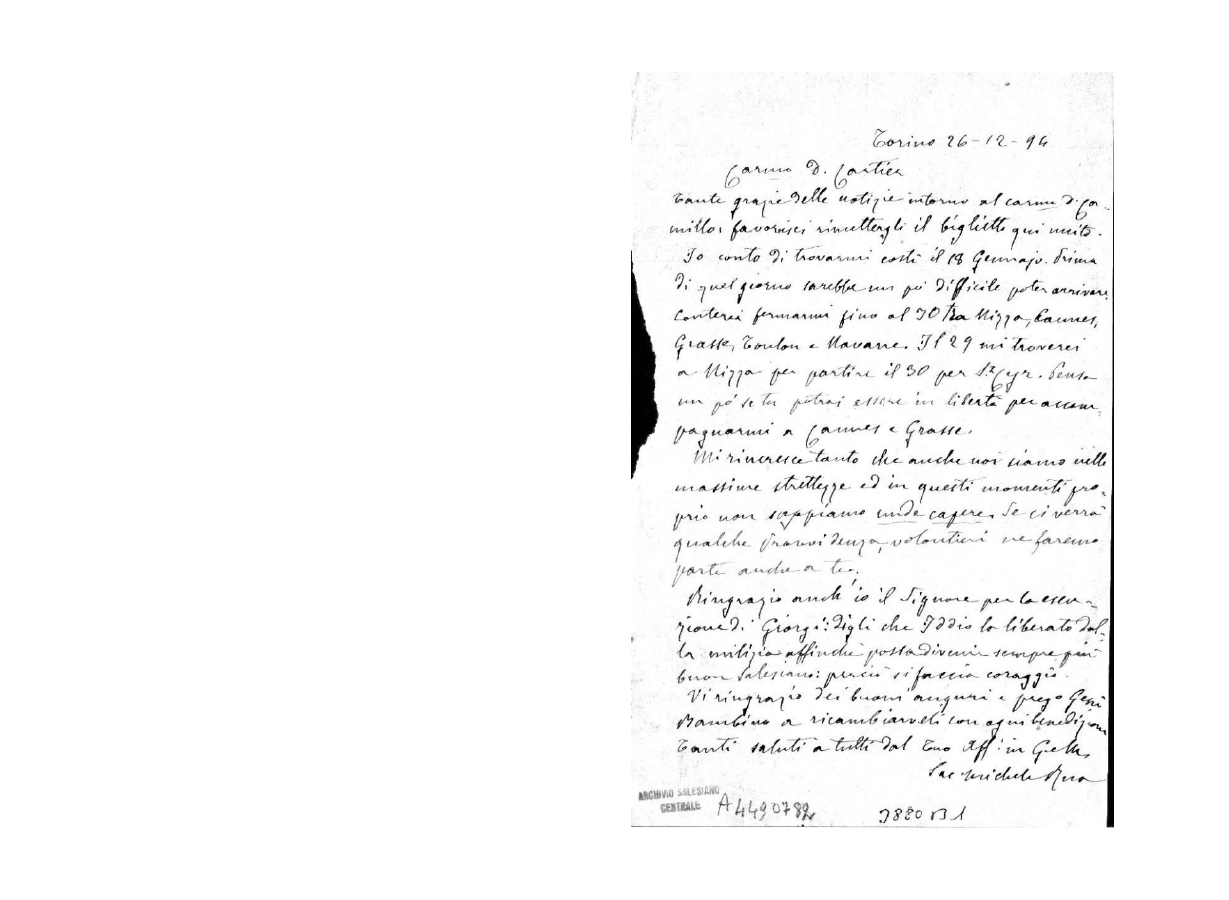 Torino 26-12-94
Carmo D. Cartier
Tante grazie delle notizie intorno al carmo D. Ca-
millo: favorisci rimettergli il biglietto qui unito.
Io conto di trovarmi costì il 18 Gennajo. Prima
di quel giorno sarebbe un po' difficile poter arrivare.
Conterei fermarmi fino al 30 tra Nizza, Cannes,
Grasse, Toulon e Navarre. Il 29 mi troverei
a Nizza per partire il 30 per St. Cyr. Pensa
un po' se tu potrai essere in libertà per accom-
pagnarmi a Cannes e Grasse.
Mi rincresce tanto che anche noi siamo nelle
massime strettezze ed in questi momenti pro-
prio non sappiamo unde capere. Se ci verrà
qualche Provvidenza, volontieri ne faremo
parte anche a te.
Ringrazio anch'io il Signore per la esen-
zione di Giorgi: digli che Iddio lo liberato dal-
la milizia affinchè possa divenir sempre più
buon Salesiano: perciò si faccia coraggio.
Vi ringrazio dei buoni auguri e prego Gesù
Bambino a ricambiarveli con ogni benedizione
Tanti saluti a tutti dal Tuo Aff. in G. e M.
Sac. Michele Rua
ARCHIVIO SALESIANO
CENTRALE
A4490782
3880 B1